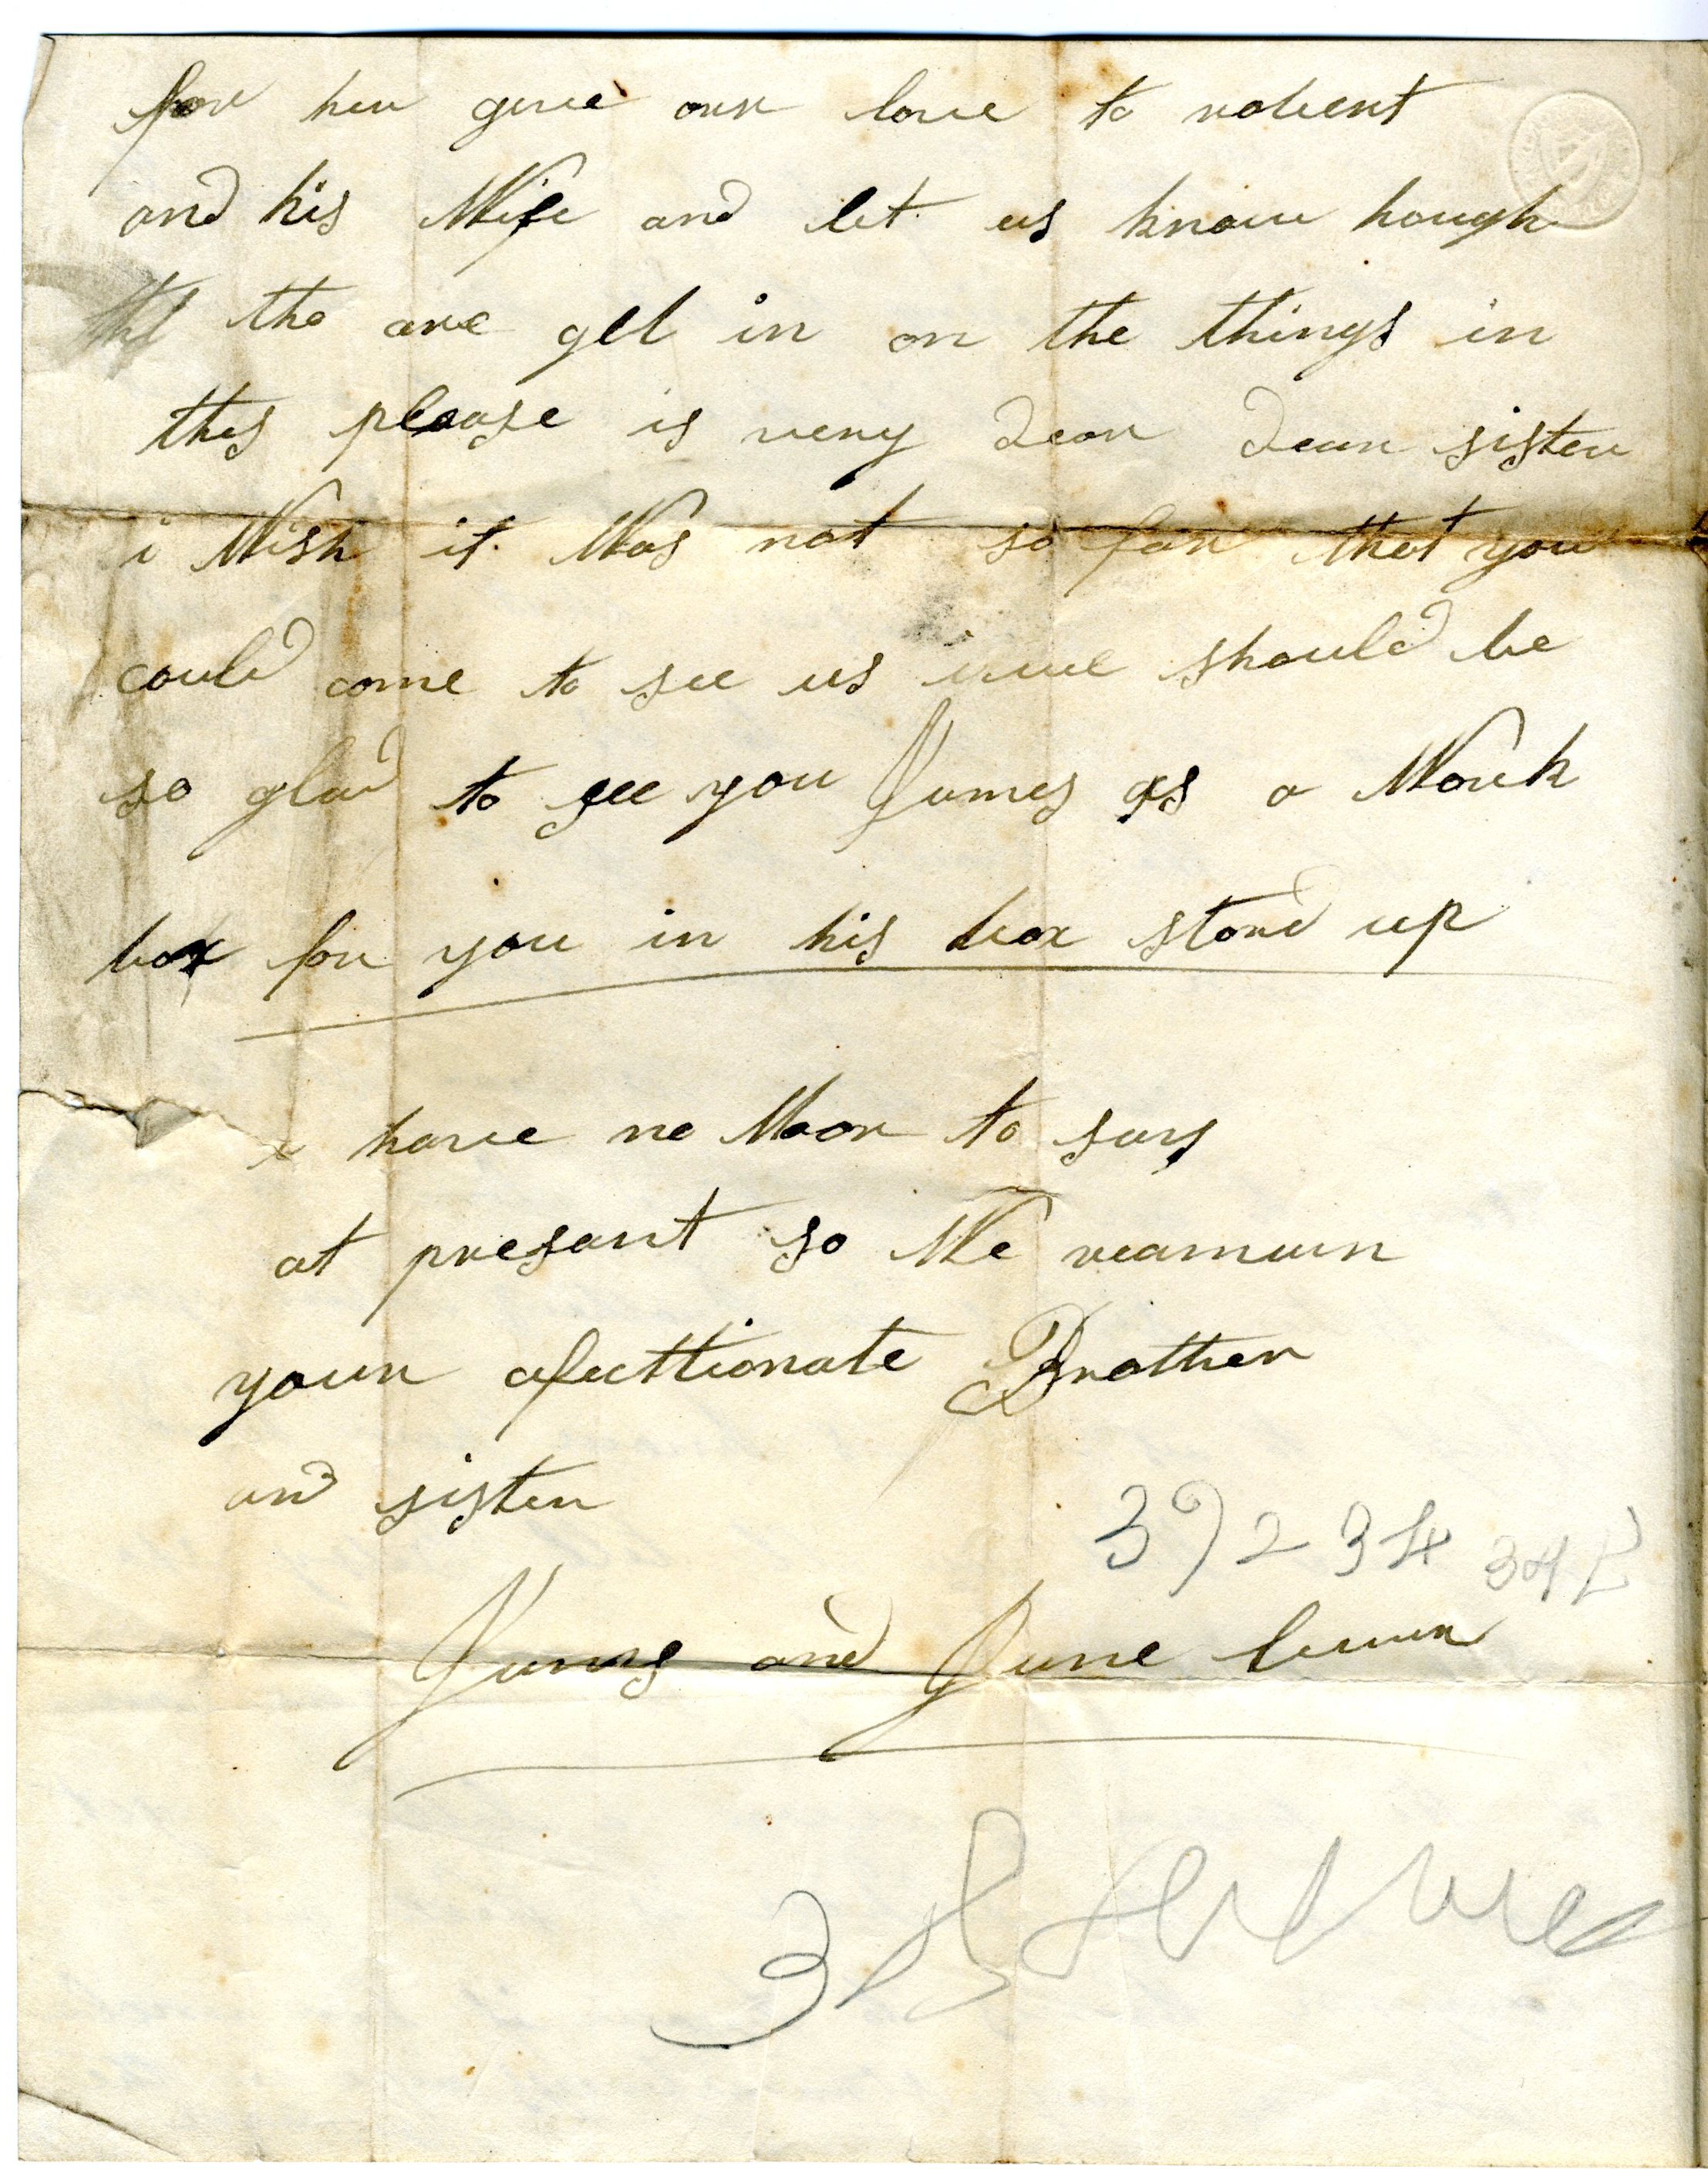 for her give our love to robert
and his Wife and let us know hough
the are get in on the things in
this please is very dear dear sister
i Wish it Was not so far that you
could come to see us wee should be
so glad to see you James as a Work
box for you in his box stowd up
have no Moor to say
at present so We reamain
your afecttionate Brother
and sister
39234 34
James and Jane